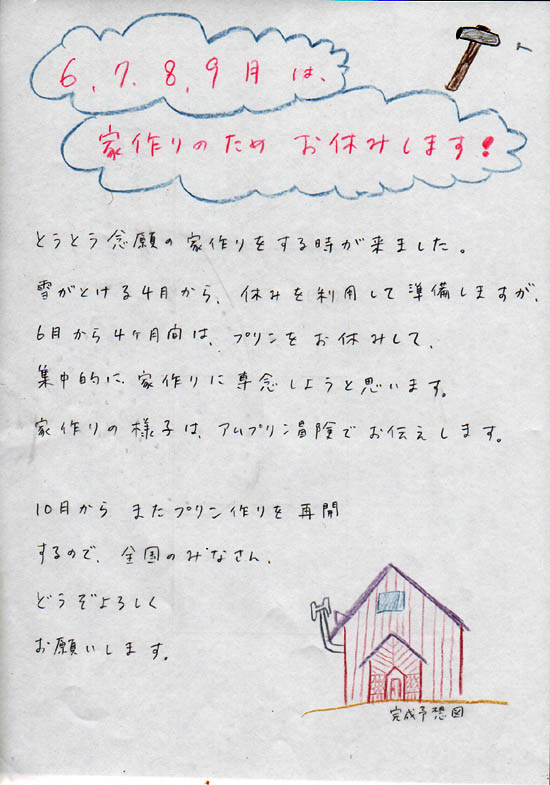 6、7、8、9月は、
家作りのため お休みします!
とうとう念願の家作りをする時が来ました。
雪がとける4月から、休みを利用して準備しますが、
6月から4ヶ月間は、プリンをお休みして、
集中的に家作りに専念しようと思います。
家作りの様子は、アムプリン冒険でお伝えします。
10月から またプリン作りを再開
するので、全国のみなさん、
どうぞよろしく
お願いします。
完成予想図